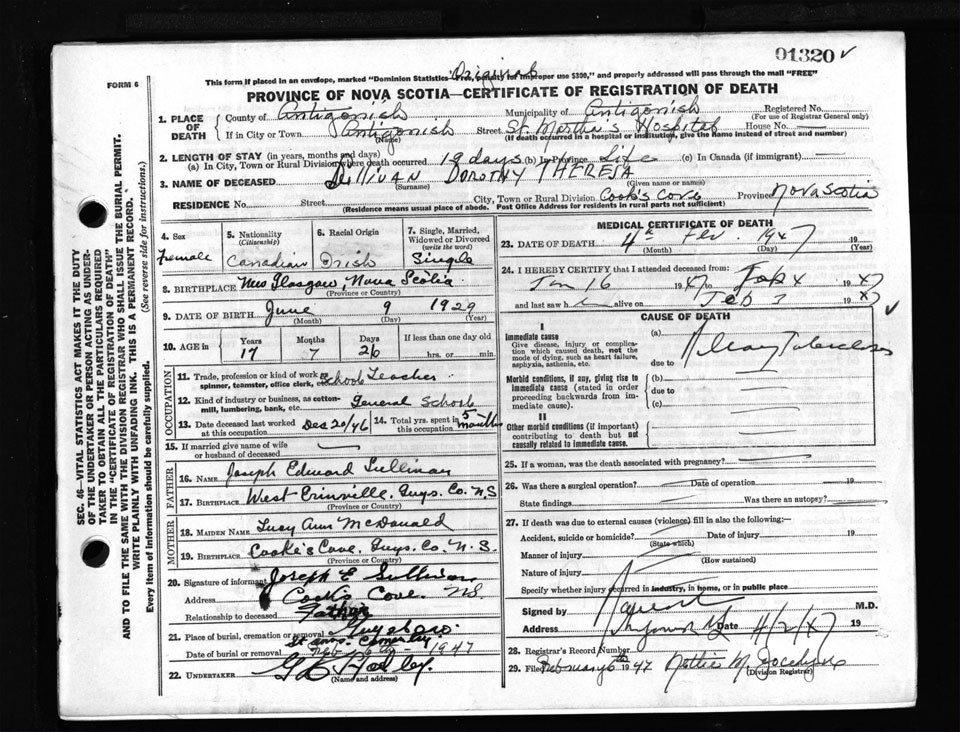 01320 ✓
FORM 6
Original
This form if placed in an envelope, marked "Dominion Statistics Free, Penalty for improper use $300," and properly addressed will pass through the mail "FREE"
PROVINCE OF NOVA SCOTIA—CERTIFICATE OF REGISTRATION OF DEATH
1. PLACE OF DEATH
County of Antigonish Municipality of Antigonish Registered No.
(For use of Registrar General only)
If in City or Town Antigonish Street St. Martha's Hospital House No.
(Name) (If death occurred in a hospital or institution, give the name instead of street and number)
2. LENGTH OF STAY (in years, months and days)
(a) In City, Town or Rural Division where death occurred 19 days (b) In Province Life (c) In Canada (if immigrant)
3. NAME OF DECEASED Sullivan Dorothy Theresa
(Surname) (Given name or names)
RESIDENCE No. Street City, Town or Rural Division Cook's Cove Province Nova Scotia
(Residence means usual place of abode. Post Office Address for residents in rural parts not sufficient)
4. Sex
female
5. Nationality
(Citizenship)
Canadian
6. Racial Origin
Irish
7. Single, Married, Widowed or Divorced
(write the word)
Single
8. BIRTHPLACE New Glasgow, Nova Scotia
(Province or Country)
9. DATE OF BIRTH June 9 1929
(Month) (Day) (Year)
10. AGE in Years Months Days If less than one day old
17 7 26 hrs. or min.
OCCUPATION
11. Trade, profession or kind of work as spinner, teamster, office clerk, etc. School Teacher
12. Kind of industry or business, as cotton-mill, lumbering, bank, etc. General School
13. Date deceased last worked at this occupation Dec 20/46
14. Total yrs. spent in this occupation 5 months
15. If married give name of wife or husband of deceased
FATHER
16. NAME Joseph Edward Sullivan
17. BIRTHPLACE West Erinville, Guys. Co. N.S
MOTHER
18. MAIDEN NAME Lucy Ann McDonald
19. BIRTHPLACE Cooke's Cove, Guys. Co. N.S.
(Province or Country)
20. Signature of informant Joseph E Sullivan
Address Cook's Cove. N.S.
Relationship to deceased Father
21. Place of burial, cremation or removal Guysboro
St Anns Cemetery
Date of burial or removal Feb 6th 1947
22. UNDERTAKER
(Name and address)
MEDICAL CERTIFICATE OF DEATH
23. DATE OF DEATH 4th Fev. 1947 19
(Month) (Day) (Year)
24. I HEREBY CERTIFY that I attended deceased from:
Jan 16 1947 to Feb 4 1947
and last saw h alive on Feb 3 1947
CAUSE OF DEATH
I
Immediate cause
Give disease, injury or complication which caused death, not the mode of dying, such as heart failure, asphyxia, asthenia, etc.
(a) Miliary Tuberculosis
due to
Morbid conditions, if any, giving rise to immediate cause (stated in order proceeding backwards from immediate cause).
(b)
due to
(c)
II
Other morbid conditions (if important) contributing to death but not causally related to immediate cause.
25. If a woman, was the death associated with pregnancy?
26. Was there a surgical operation? Date of operation 19
State findings Was there an autopsy?
27. If death was due to external causes (violence) fill in also the following:
Accident, suicide or homicide? Date of injury 19
(State which)
Manner of injury
(How sustained)
Nature of injury
Specify whether injury occurred in industry, in home, or in public place
Signed by M.D.
Address Antigonish NS Date 4/2/47 19
28. Registrar's Record Number
29. Filed February 6th 1947 Nettie M.
(Division Registrar)
SEC. 46—VITAL STATISTICS ACT MAKES IT THE DUTY
OF THE UNDERTAKER OR PERSON ACTING AS UNDERTAKER TO OBTAIN ALL THE PARTICULARS REQUIRED
IN THE "CERTIFICATE OF REGISTRATION OF DEATH"
AND TO FILE THE SAME WITH THE DIVISION REGISTRAR WHO SHALL ISSUE THE BURIAL PERMIT.
WRITE PLAINLY WITH UNFADING INK. THIS IS A PERMANENT RECORD.
Every item of information should be carefully supplied. (See reverse side for instructions.)